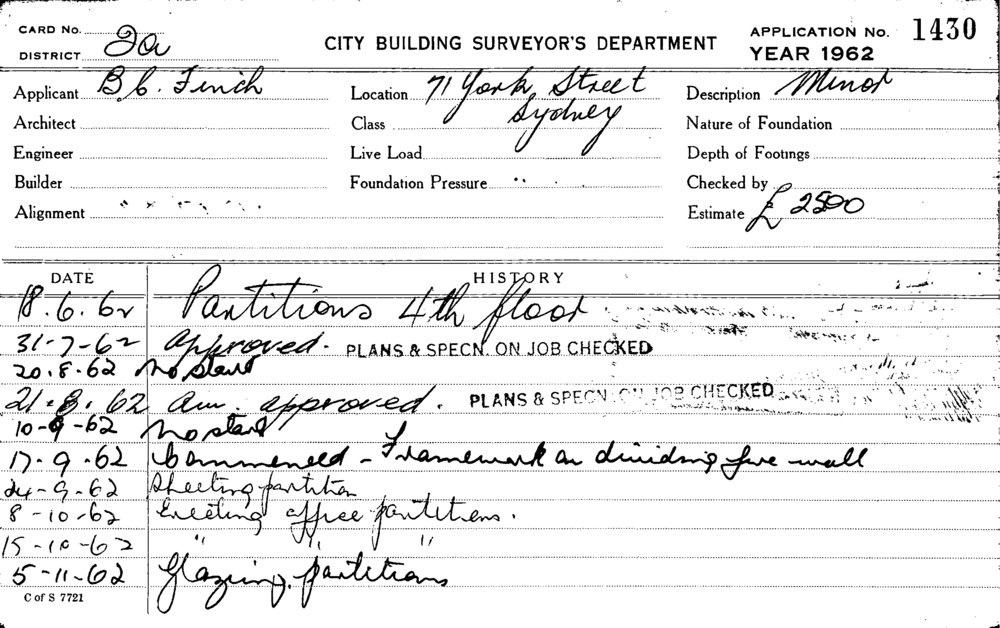 CARD No. 2a
DISTRICT
CITY BUILDING SURVEYOR'S DEPARTMENT
APPLICATION No. 1430
YEAR 1962
Applicant B C. Finch
Location 71 York Street
Sydney
Description Minor
Architect
Class
Nature of Foundation
Engineer
Live Load
Depth of Footings
Builder
Foundation Pressure
Checked by
Alignment
Estimate £ 2500
DATE HISTORY
18.6.62 Partitions 4th floor
31-7-62 approved. PLANS & SPECN. ON JOB CHECKED
20.8.62 No start
21.8.62 am. approved. PLANS & SPECN. ON JOB CHECKED
10-9-62 No start
17.9.62 Commenced - Framework on dividing fire wall
24-9-62 Sheeting partition
8-10-62 Erecting office partitions.
15-10-62 " " "
5-11-62 Glazing partitions
C of S 7721